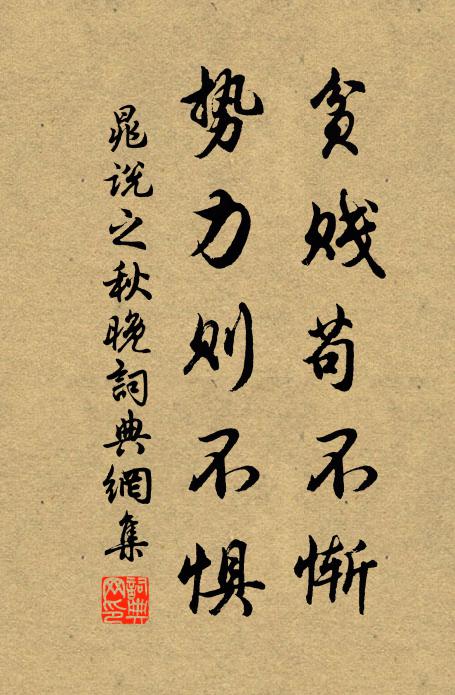 贫贱苟不惭
势力则不惧
晁说之秋晚詞典網集
詞典网印